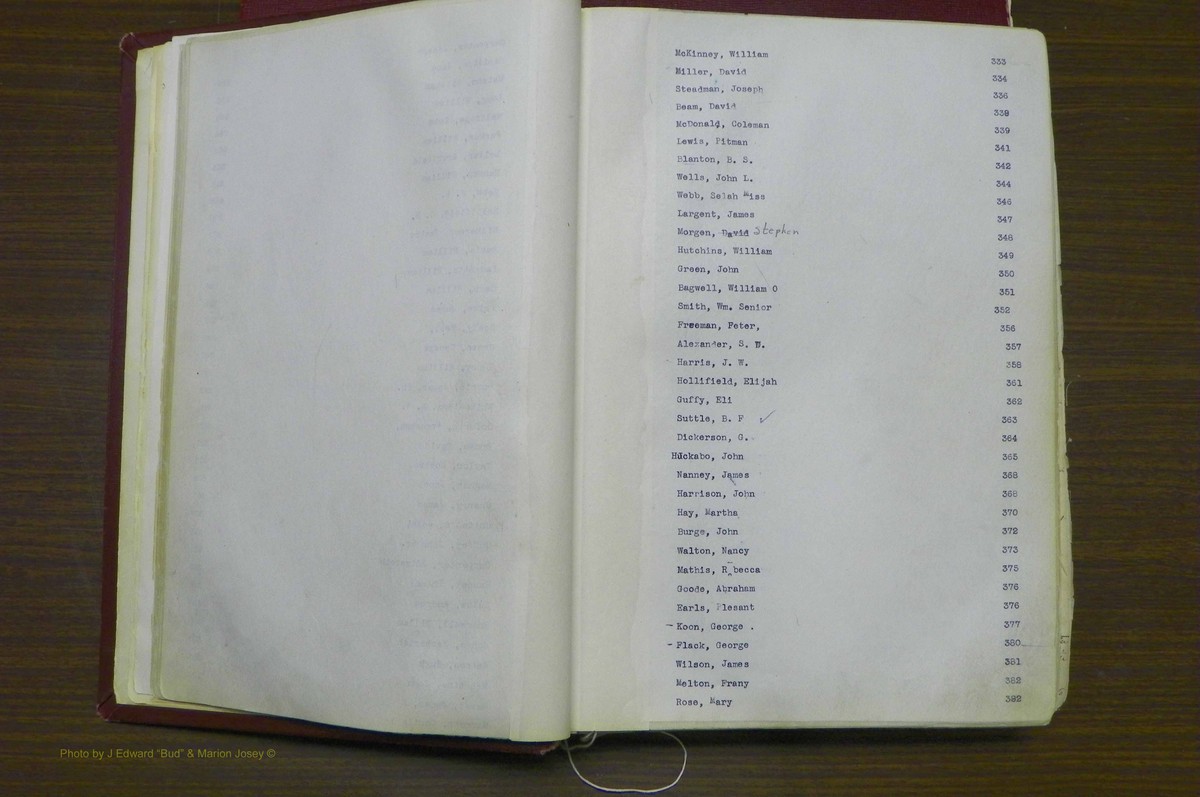 McKinney, William 333
Miller, David 334
Steadman, Joseph 336
Beam, David 338
McDonald, Coleman 339
Lewis, Pitman 341
Blanton, B. S. 342
Wells, John L. 344
Webb, Selah Miss 346
Largent, James 347
Morgen, David Stephen 348
Hutchins, William 349
Green, John 350
Bagwell, William O 351
Smith, Wm. Senior 352
Freeman, Peter, 356
Alexander, S. W. 357
Harris, J. W. 358
Hollifield, Elijah 361
Guffy, Eli 362
Suttle, B. F ✓ 363
Dickerson, G. 364
Huckabo, John 365
Nanney, James 368
Harrison, John 368
Hay, Martha 370
Burge, John 372
Walton, Nancy 373
Mathis, Rebecca 375
Goode, Abraham 376
Earls, Plesant 376
- Koon, George . 377
- Flack, George 380
Wilson, James 381
Melton, Frany 382
Rose, Mary 382
Photo by J Edward "Bud" & Marion Josey ©